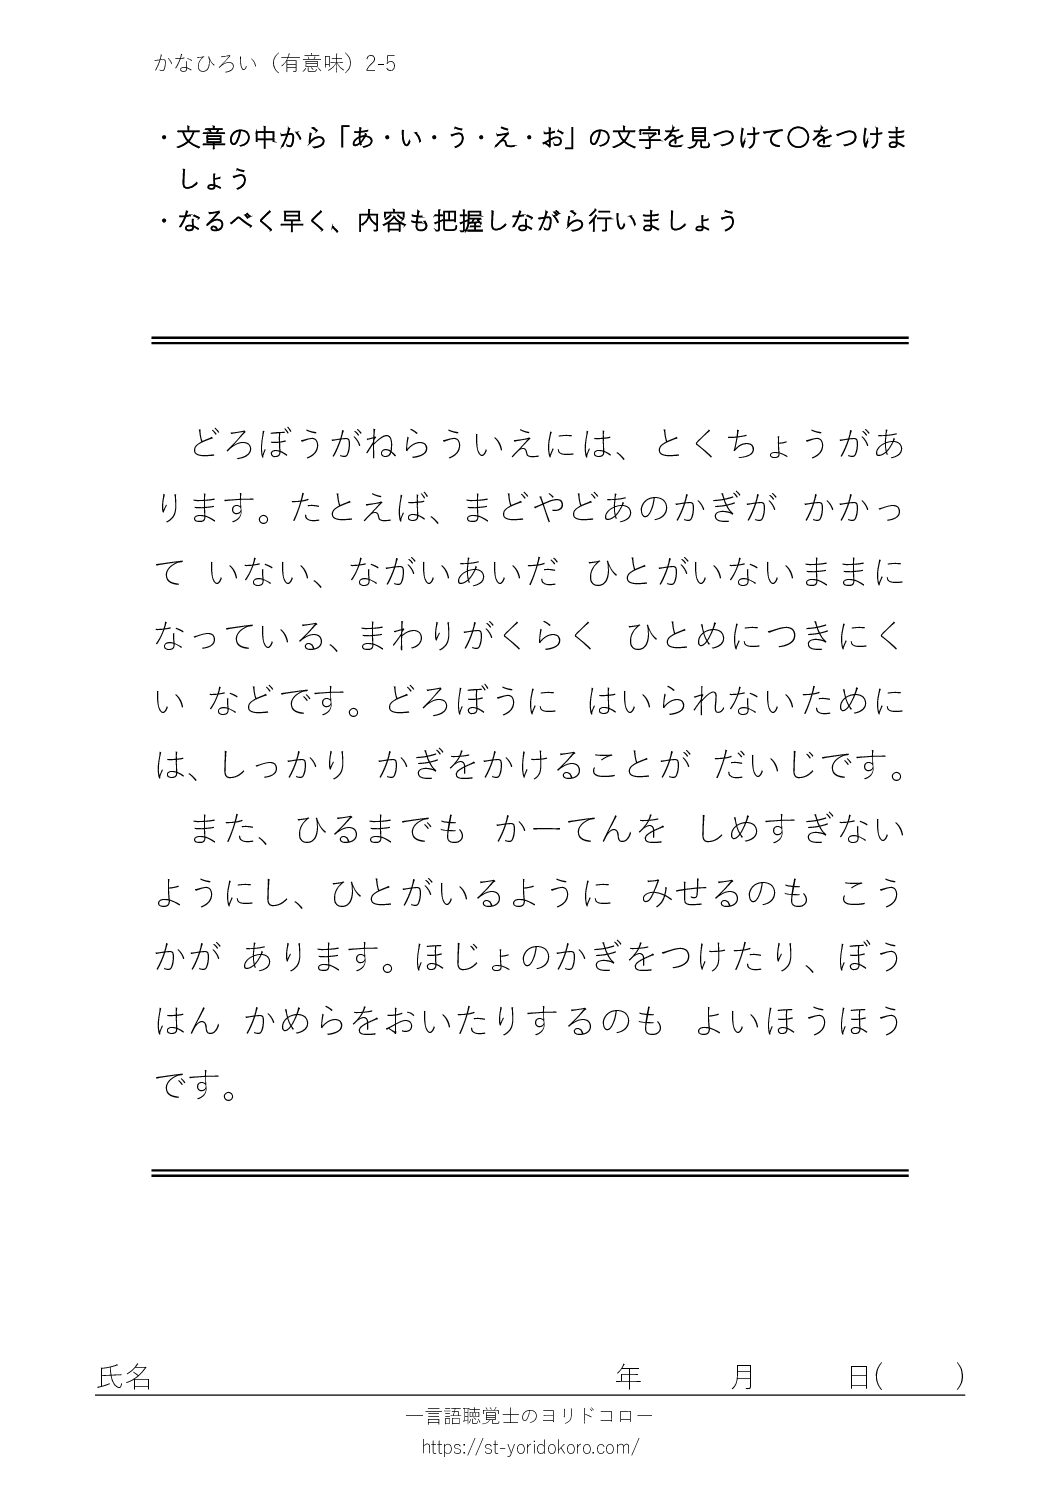 かなひろい（有意味）2-5
・文章の中から「あ・い・う・え・お」の文字を見つけて〇をつけま
しょう
・なるべく早く、内容も把握しながら行いましょう
どろぼうがねらういえには、とくちょうがあ
ります。たとえば、まどやどあのかぎが　かかっ
て　いない、ながいあいだ　ひとがいないままに
なっている、まわりがくらく　ひとめにつきにく
い　などです。どろぼうに　はいられないために
は、しっかり　かぎをかけることが　だいじです。
また、ひるまでも　かーてんを　しめすぎない
ようにし、ひとがいるように　みせるのも　こう
かが　あります。ほじょのかぎをつけたり、ぼう
はん　かめらをおいたりするのも　よいほうほう
です。
氏名　年　月　日(　)
―言語聴覚士のヨリドコロ―
https://st-yoridokoro.com/